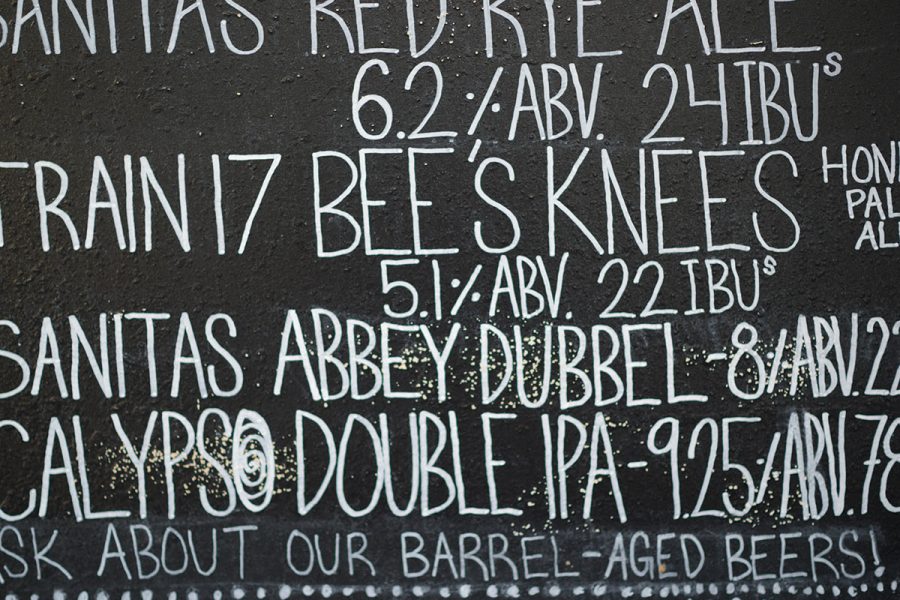 SANITAS RED RYE ALE
6.2% ABV. 24 IBUs
TRAIN 17 BEE'S KNEES HONE
PAL
AL
5.1% ABV. 22 IBUs
SANITAS ABBEY DUBBEL - 8% ABV. 22
CALYPSO DOUBLE IPA - 9.25% ABV. 78
ASK ABOUT OUR BARREL-AGED BEERS!